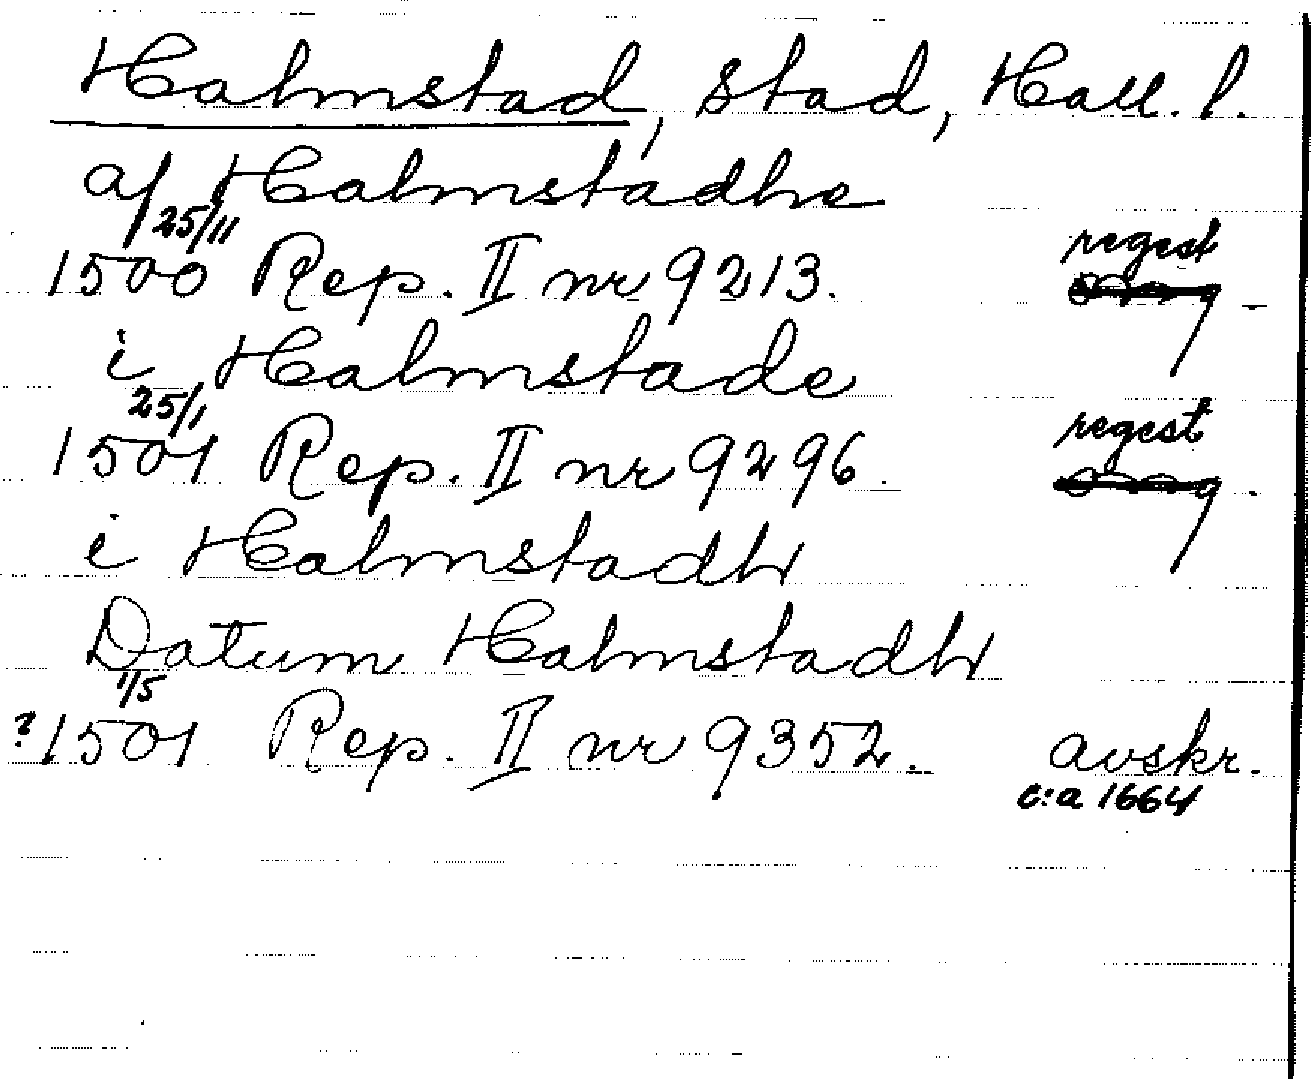 Halmstad, stad, Hall. l.
af Halmstadhe
25/11 regest
1500 Rep. II nr 9213.
i Halmstade
25/1 regest
1501 Rep. II nr 9296.
i Halmstadh
Datum Halmstadh
1/5
?1501 Rep. II nr 9352. avskr.
c:a 1664